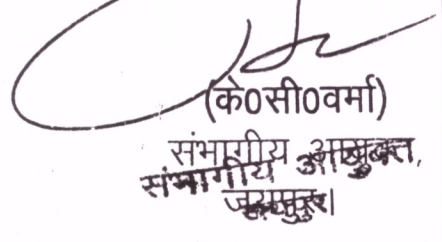 (के0सी0वर्मा)
संभागीय आयुक्त,
संभागीय आयुक्त
जयपुर।